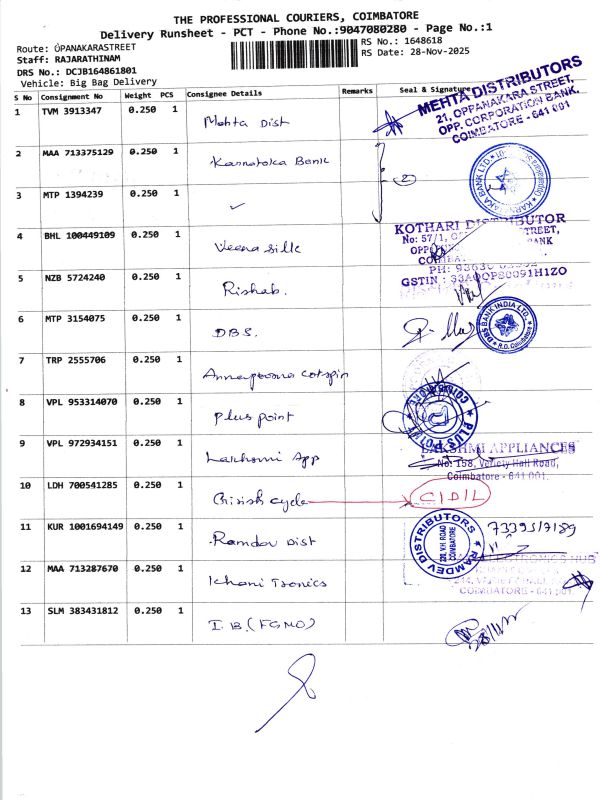 THE PROFESSIONAL COURIERS, COIMBATORE
Delivery Runsheet - PCT - Phone No.:9047080280 - Page No.:1
Route: OPANAKARASTREET
RS No.: 1648618
Staff: RAJARATHINAM
RS Date: 28-Nov-2025
DRS No.: DCJB164861801
Vehicle: Big Bag Delivery
S No Consignment No Weight PCS Consignee Details Remarks Seal & Signature
1 TVM 3913347 0.250 1 Mehta Dist
MEHTA DISTRIBUTORS
21, OPPANAKARA STREET,
OPP. CORPORATION BANK,
COIMBATORE - 641 001
2 MAA 713375129 0.250 1 Karnataka Bank
3 MTP 1394239 0.250 1 ✓
2
4 BHL 100449109 0.250 1 Veena silk
KOTHARI DISTRIBUTOR
No: 57/1,
STREET,
BANK
PH: 93630
GSTIN : 33AOQPS0091H1ZO
5 NZB 5724240 0.250 1 Rishab.
6 MTP 3154075 0.250 1 DBS.
DBS BANK INDIA LTD.
R.O. Coimbatore
7 TRP 2555706 0.250 1 Annapoorna cotspin
8 VPL 953314070 0.250 1 Plus point
PLUS POINT
COIMBATORE
9 VPL 972934151 0.250 1 Lakshmi App
LAKSHMI APPLIANCES
No: 158, Veriety Hall Road,
Coimbatore - 641 001.
10 LDH 700541285 0.250 1 Girish cycle
CIDIL
11 KUR 1001694149 0.250 1 Ramdev Dist
RAMDEV DISTRIBUTORS
220, V.H. ROAD
COIMBATORE
7339517189
12 MAA 713287670 0.250 1 Khani Tronics
COIMBATORE - 641 001.
13 SLM 383431812 0.250 1 I.B.(FGMO)